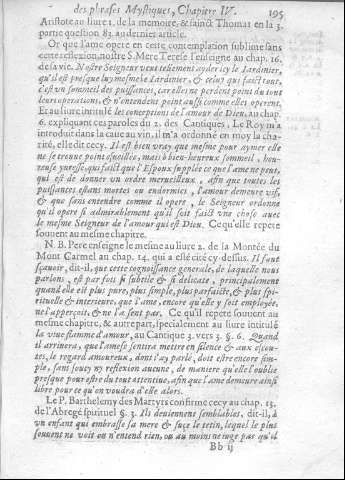 des phrases Mystiques, Chapitre IV. 195
Aristote au liure 1. de la memoire, & sainct Thomas en la 3.
partie question 82. au dernier article.
Or que l'ame opere en cette contemplation sublime sans
cette reflexion, nostre S. Mere Terese l'enseigne au chap. 16.
de sa vie. Nostre Seigneur veut tellement ayder icy le Iardinier,
qu'il est presque luy mesme le Iardinier, & celuy qui faict tout,
c'est vn sommeil des puissances, car elles ne perdent point du tout
leurs operations, & n'entendent point aussi comme elles operent.
Et au liure intitulé les conceptions de l'amour de Dieu, au chap.
6. expliquant ces paroles du 2. des Cantiques, Le Roy m'a
introduit dans la caue au vin, il m'a ordonné en moy la cha-
rité, elle dit cecy. Il est bien vray que mesme pour aymer elle
ne se trouue point esueillée, mais ô bien-heureux sommeil, heu-
reuse yuresse, qui faict que l'Espoux supplée ce que l'ame ne peut,
qui est de donner vn ordre merueilleux, afin que toutes les
puissances estans mortes ou endormies, l'amour demeure vif,
& que sans entendre comme il opere, le Seigneur ordonne
qu'il opere si admirablement qu'il soit faict vne chose auec
le mesme Seigneur de l'amour qui est Dieu. Ce qu'elle repete
souuent au mesme chapitre.
N. B. Pere enseigne le mesme au liure 2. de la Montée du
Mont Carmel au chap. 14. qui a esté cité cy dessus. Il faut
sçauoir, dit-il, que cette cognoissance generale, de laquelle nous
parlons, est par fois si subtile & si delicate, principalement
quand elle est plus pure, plus simple, plus parfaicte, & plus spi-
rituelle & interieure, que l'ame encore qu'elle y soit employée,
ne l'apperçoit, & ne la sent pas. Ce qu'il repete souuent au
mesme chapitre, & autre part, specialement au liure intitulé
la viue flamme d'amour, au Cantique 3. vers 3. §. 6. Quand
il arriuera, que l'ame se sentira mettre en silence & aux escou-
tes, le regard amoureux, dont i'ay parlé, doit estre encore sim-
ple, sans soucy ny reflexion aucune, de maniere qu'elle l'oublie
presque pour estre du tout attentiue, afin que l'ame demeure ainsi
libre pour ce qu'on voudra d'elle alors.
Le P. Barthelemy des Martyrs confirme cecy au chap. 13.
de l'Abregé spirituel §. 3. Ils deuiennent semblables, dit-il, à
vn enfant qui embrasse sa mere & suçe le tetin, lequel le plus
souuent ne voit on n'entend rien, ou au moins ne iuge pas qu'il
Bb ij